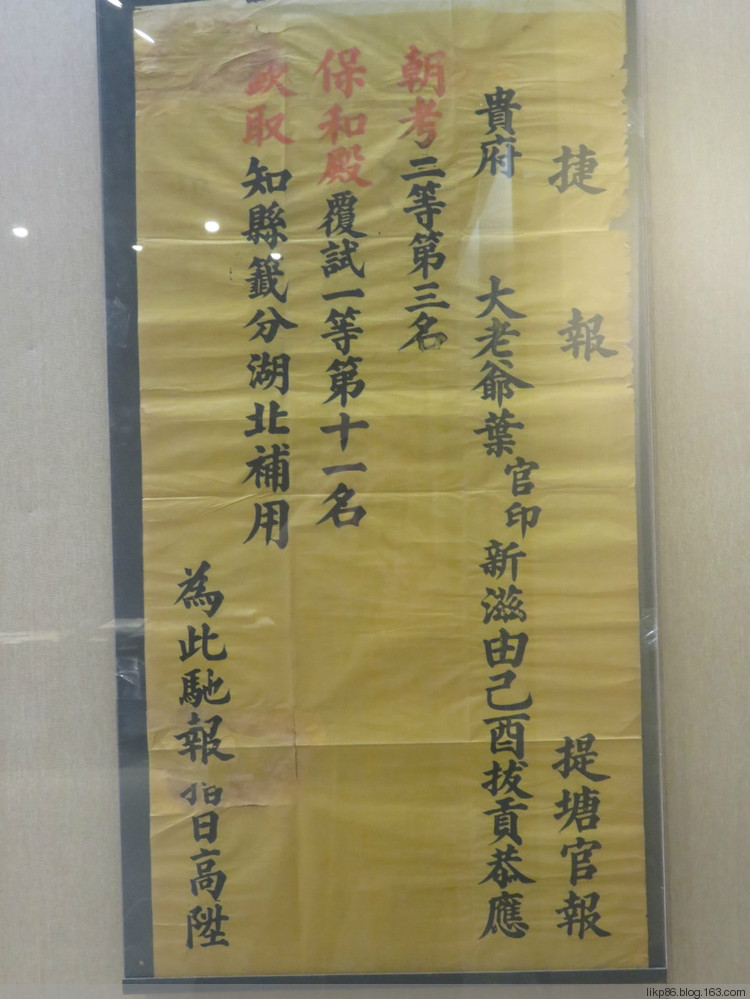 捷報 提塘官報
貴府大老爺葉官印新滋由己酉拔貢恭應
朝考二等第三名
保和殿覆試一等第十一名
欽取知縣籤分湖北補用
為此馳報 指日高陞
likp86.blog.163.com